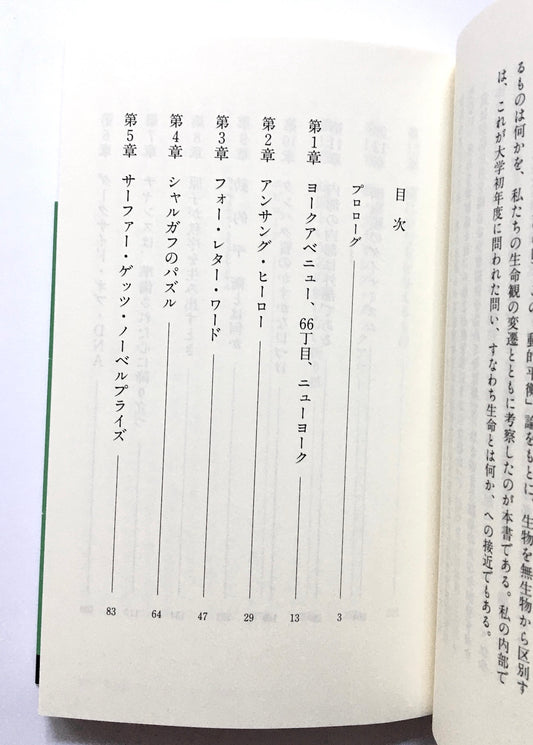 動的平衡」論をもとに、生物を無生物から区別す
るものは何かを、私たちの生命観の変遷とともに考察したのが本書である。私の内部で
は、これが大学初年度に問われた問い、すなわち生命とは何か、への接近でもある。
目次
プロローグ 3
第1章 ヨークアベニュー、66丁目、ニューヨーク 13
第2章 アンサング・ヒーロー 29
第3章 フォー・レター・ワード 47
第4章 シャルガフのパズル 64
第5章 サーファー・ゲッツ・ノーベルプライズ 83